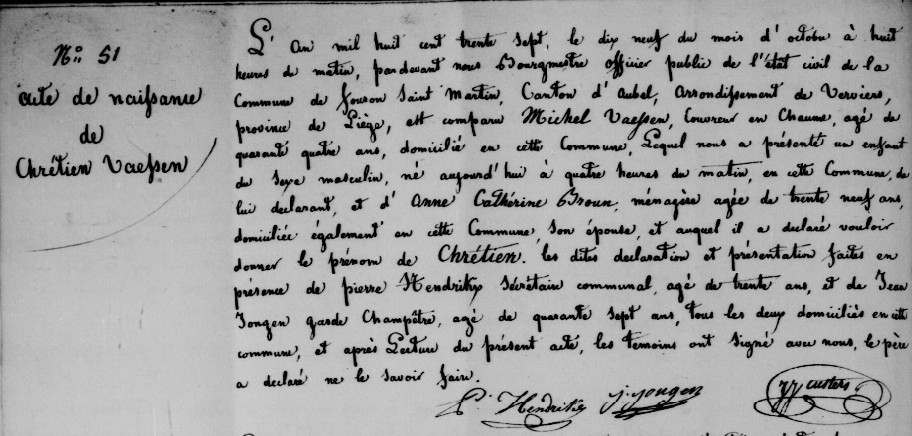 N.° 51
acte de naissance
de
Chrétien Vaessen
L'An mil huit cent trente sept, le dix neuf du mois d'octobre à huit
heures du matin, pardevant nous Bourgmestre officier public de l'état civil de la
Commune de fouron Saint Martin, Canton d'Aubel, Arrondissement de Verviers,
province de Liège, est comparu Michel Vaessen, Couvreur en Chaume, agé de
quarante quatre ans, domicilié en cette Commune, Lequel nous a présenté un enfant
du Sexe masculin, né aujourd'hui à quatre heures du matin, en cette Commune, de
lui declarant, et d'Anne Cathérine Broun, ménagère agée de trente neuf ans,
domiciliée également en cette Commune Son épouse, et auquel il a declaré vouloir
donner le prénom de Chrétien. les dites declaration et présentation faites en
présence de pierre Hendrikx Sécrétaire communal, agé de trente ans, et de Jean
Jongen garde Champêtre, agé de quarante Sept ans, tous les deux domiciliés en cette
commune, et après Lecture du présent acte, les temoins ont Signé avec nous, le père
a declaré ne le Savoir faire.
P. Hendrikx J. Jongen Custers